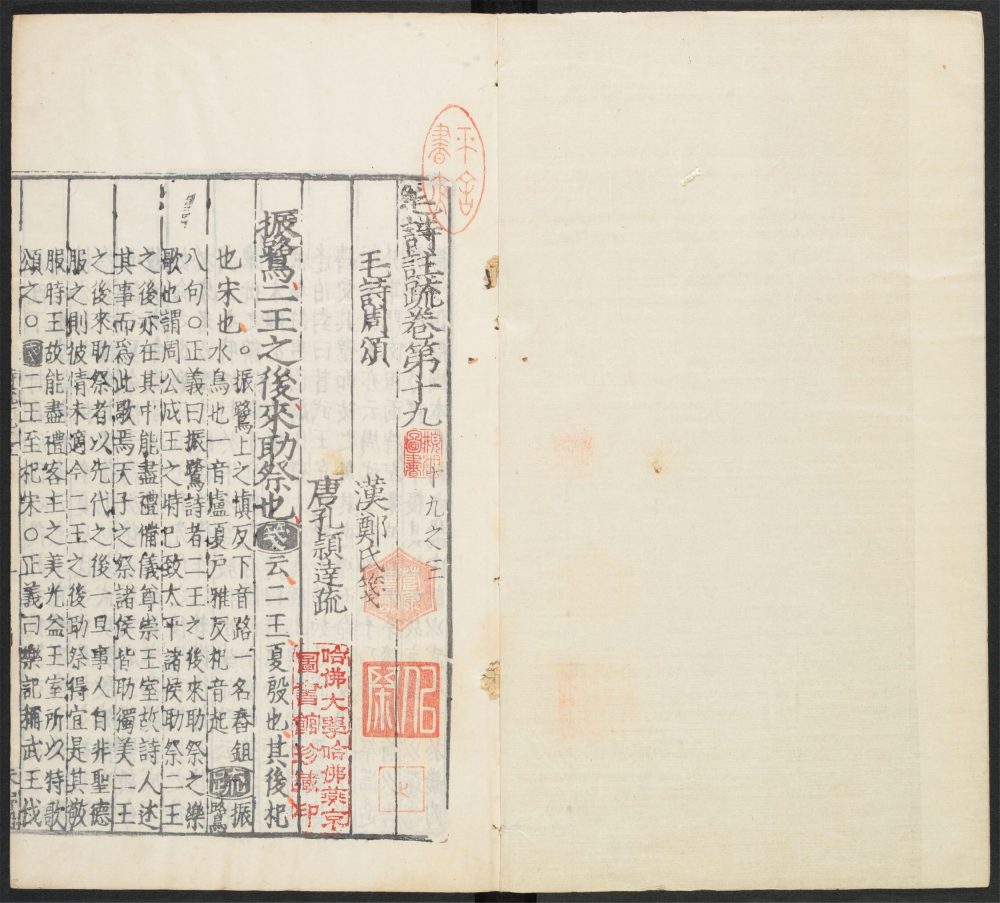 毛詩註疏卷第十九 十九之三
毛詩周頌 漢鄭氏箋
唐孔穎達疏
振鷺二王之後來助祭也 箋云二王夏殷也其後杞
也宋也。振鷺上之慎反下音路一名舂鉏
水鳥也一音盧夏戶雅反杞音起 疏 振鷺
八句○正義曰振鷺詩者二王之後來助祭之樂
歌也謂周公成王之時已致太平諸侯助祭二王
之後亦在其中能盡禮備儀尊崇王室故詩人述
其事而爲此歌焉天子之祭諸侯皆助獨美二王
之後來助祭者以先代之後一旦事人自非聖德
服之則彼情未適今二王之後助祭得宜是其敬
服時王故能盡禮客主之美光益王室所以特歌
頌之○箋二王至杞宋○正義曰樂記稱武王伐
哈佛大學哈佛燕京
圖書館珍藏印